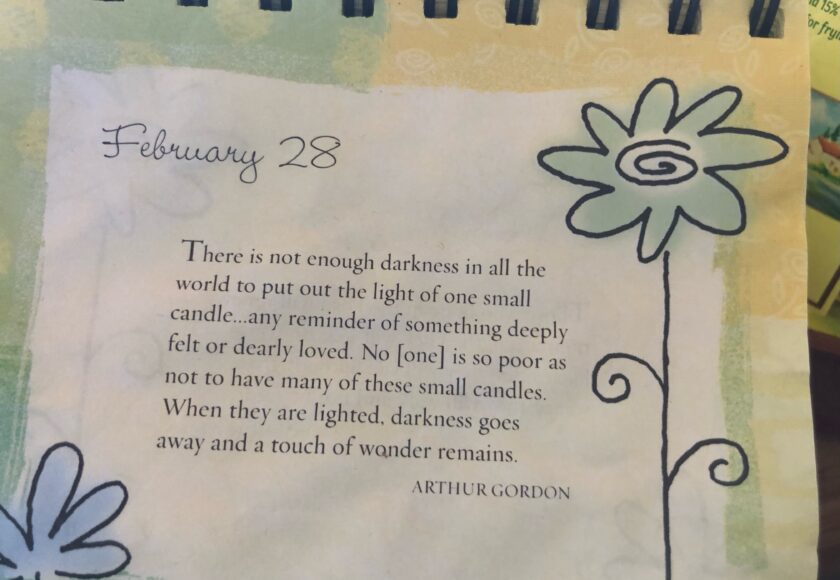 February 28
There is not enough darkness in all the
world to put out the light of one small
candle...any reminder of something deeply
felt or dearly loved. No [one] is so poor as
not to have many of these small candles.
When they are lighted, darkness goes
away and a touch of wonder remains.
ARTHUR GORDON
15%
for